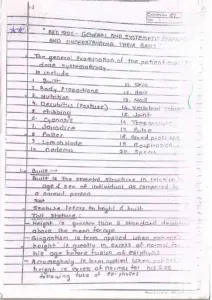 "BED SIDE - GENERAL AND SYSTEMATIC
AND UNDERSTANDING THEIR BASIS"
The general Examination of the patient
done systematically.
It include
1. Built
2. Body Proportions
3. Nutrition
4. Decubitus (Posture)
5. Clubbing
6. Cyanosis
7. Jaundice
8. Pallor
9. Lymph Node
10. oedema
11. Skin
12. Hair
13. Nail
14. Vertebral
15. Joint
16. Temperature
17. Pulse
18. Blood pressure
19. Respiration
20. Speech
1. Built :-
Built is the skeletal structure in relation
age & sex of individual as compared to
a normal person
Stature refers to height & built
Tall Stature :
- Height is greater than 2 standard
above the mean for age
- Gigantism is term applied when patient's
height is greatly in excess of normal for
his age before fusion of epiphysis
- Acromegaly is term applied when
height is excess of normal for his age
following fuse of epiphysis